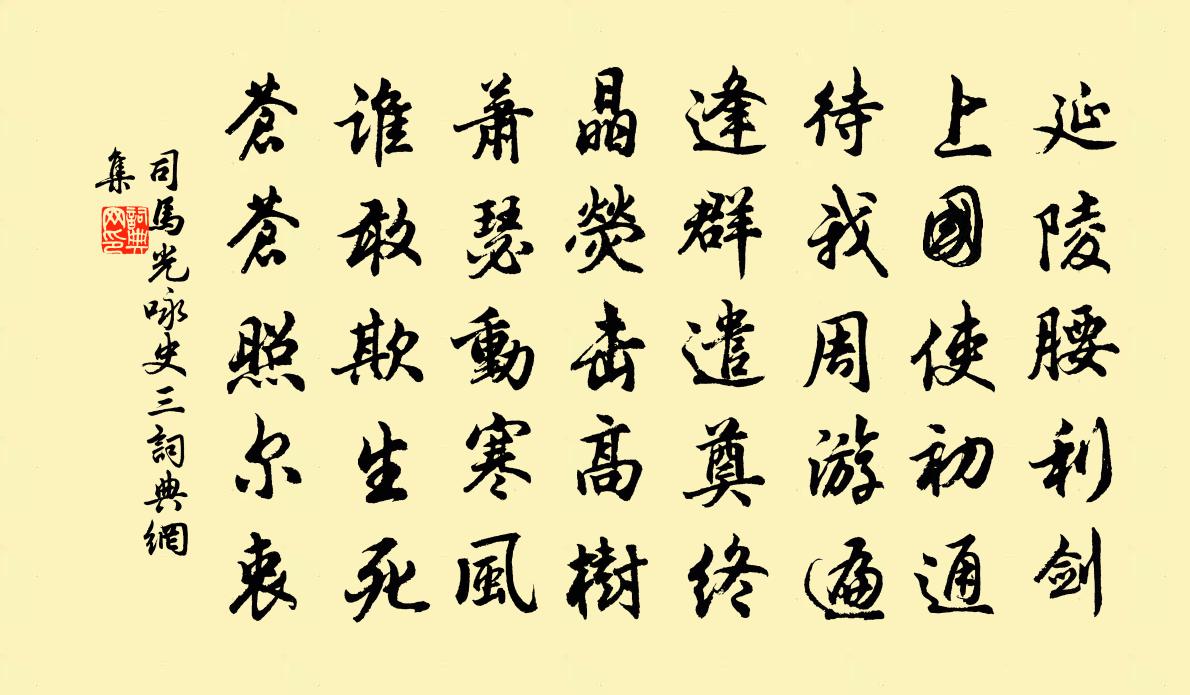 延陵腰利剑
上國使初通
待我周游遍
逢群遣奠终
晶熒击高樹
蕭瑟動寒風
谁敢欺生死
蒼蒼照尔衷
司馬光咏史三詞典網
集
詞典
网印